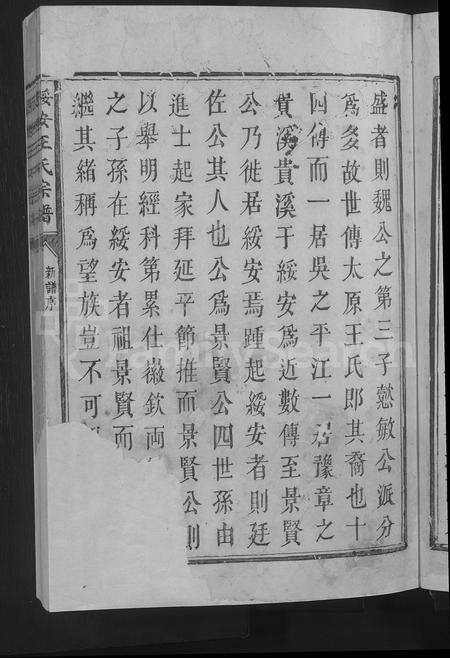 盛者則魏公之第三子懿敏公派分
為多故世傳太原王氏郎其裔也十
四傳而一居吳之平江一居豫章之
貴溪貴溪于綏安為近數傳至景賢
公乃徙居綏安焉踵起綏安者則廷
佐公其人也公為景賢公四世孫由
進士起家拜延平節推而景賢公則
以舉明經科第累仕徽欽両
之子孫在綏安者祖景賢而
繼其緒稱為望族豈不可
綏安王氏宗譜
新譜序
FamilySearch